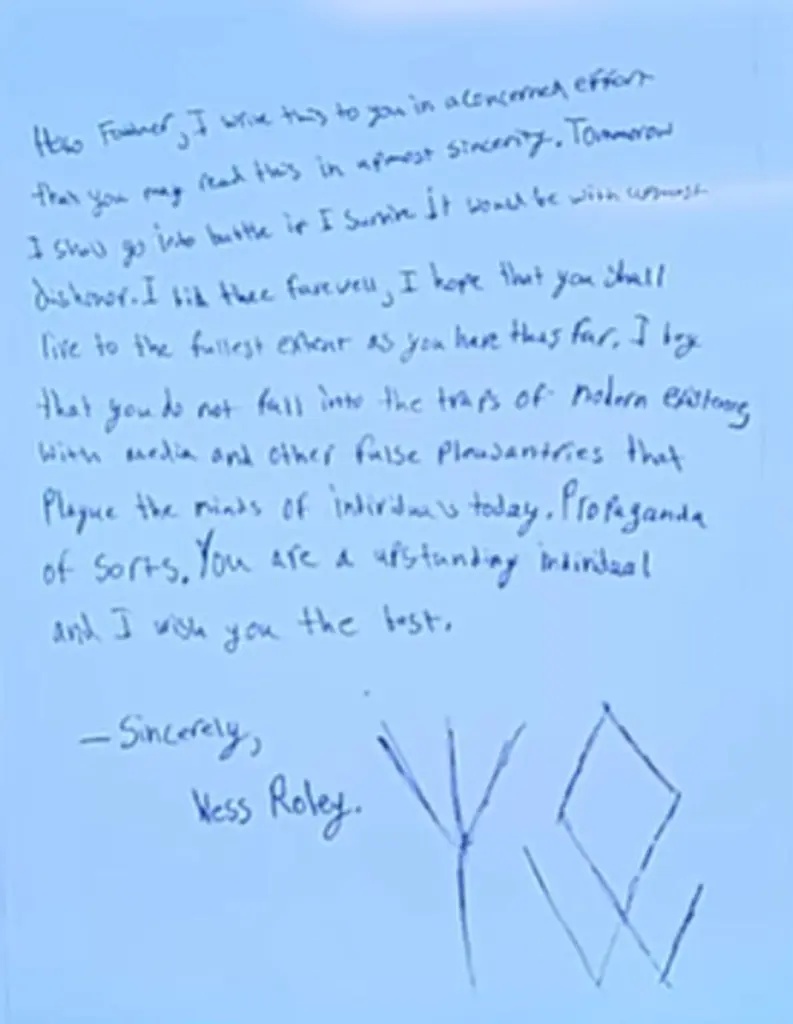 I write this to you in a concerned effort
that you may read this in upmost sincerity. Tommorow
I shall go into battle if I survive it would be with upmost
dishonor. I bid thee farewell, I hope that you shall
live to the fullest extent as you have thus far. I beg
that you do not fall into the traps of modern
with media and other false pleasantries that
Plague the minds of individuals today. Propaganda
of sorts. You are a upstanding individual
and I wish you the best.
— Sincerely,
Ness Roley.